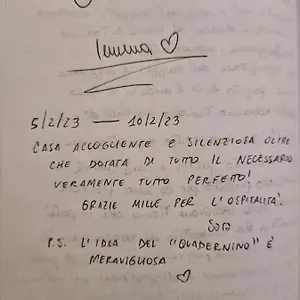 Imma ♡
5/2/23 — 10/2/23
CASA ACCOGLIENTE E SILENZIOSA OLTRE
CHE DOTATA DI TUTTO IL NECESSARIO
VERAMENTE TUTTO PERFETTO!
GRAZIE MILLE PER L'OSPITALITÀ.
P.S. L'IDEA DEL "QUADERNINO" È
MERAVIGLIOSA
♡